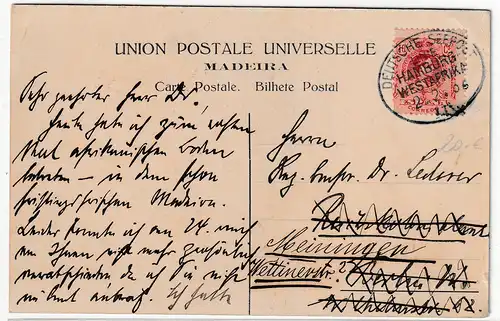 UNION POSTALE UNIVERSELLE
MADEIRA
Carte Postale. Bilhete Postal
DEUTSCHE SEEPOST
HAMBURG
WESTAFRIKA
Sehr geehrter Herr Dr.!
Heute habe ich zum ersten
Mal afrikanischen Boden
betreten – in dem schon
frühlingsfrischen Madeira.
Leider konnte ich am 24. mich
von Ihnen nicht mehr persönlich
verabschieden da ich Sie nicht
mehr antraf. Ich hatte
Herrn
Reg. Dr. Lederer
Meiningen
Wettinerstr. 2
Berlin W.
20,-€